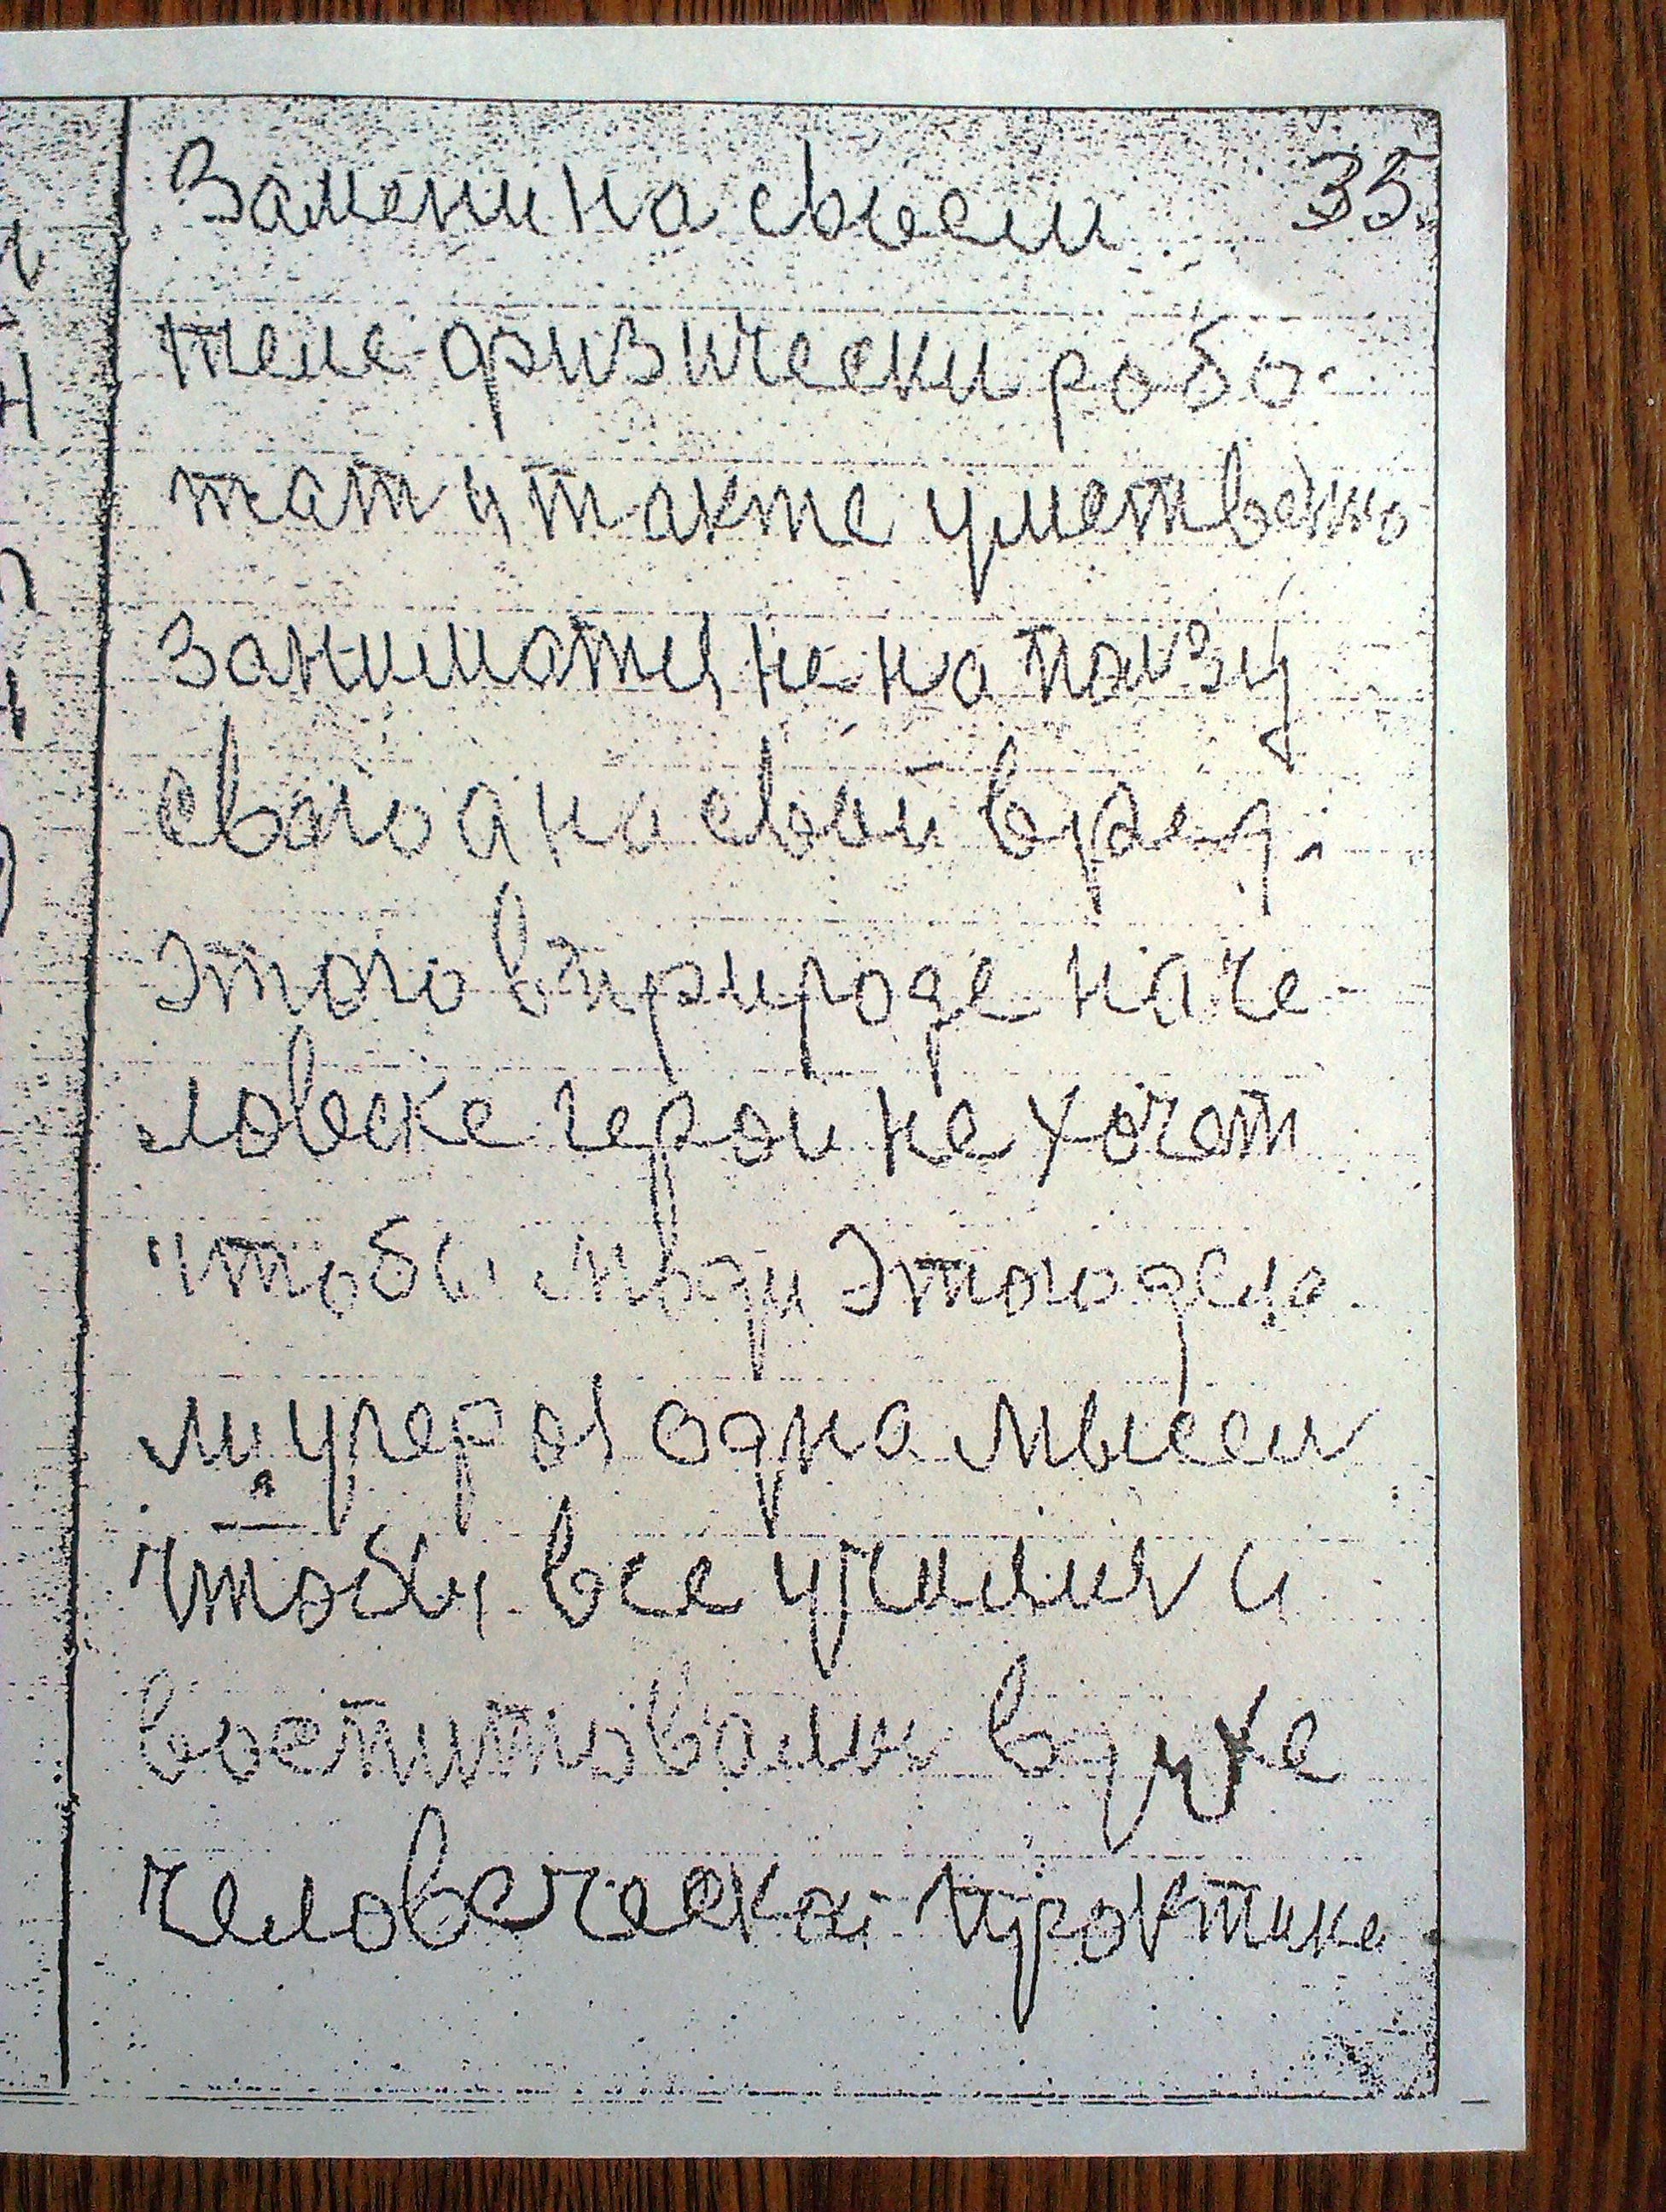 35
Замени на своем
теле физически робо-
тат и также умествено
заниматы, не на ползу
свого а на свой вред.
Этого в природе на че-
ловеке герои не хочат
чтобы люди этого дела
ли у героя одна мысел
чтобы все учились и
воспитовались в духе
человеческой практике